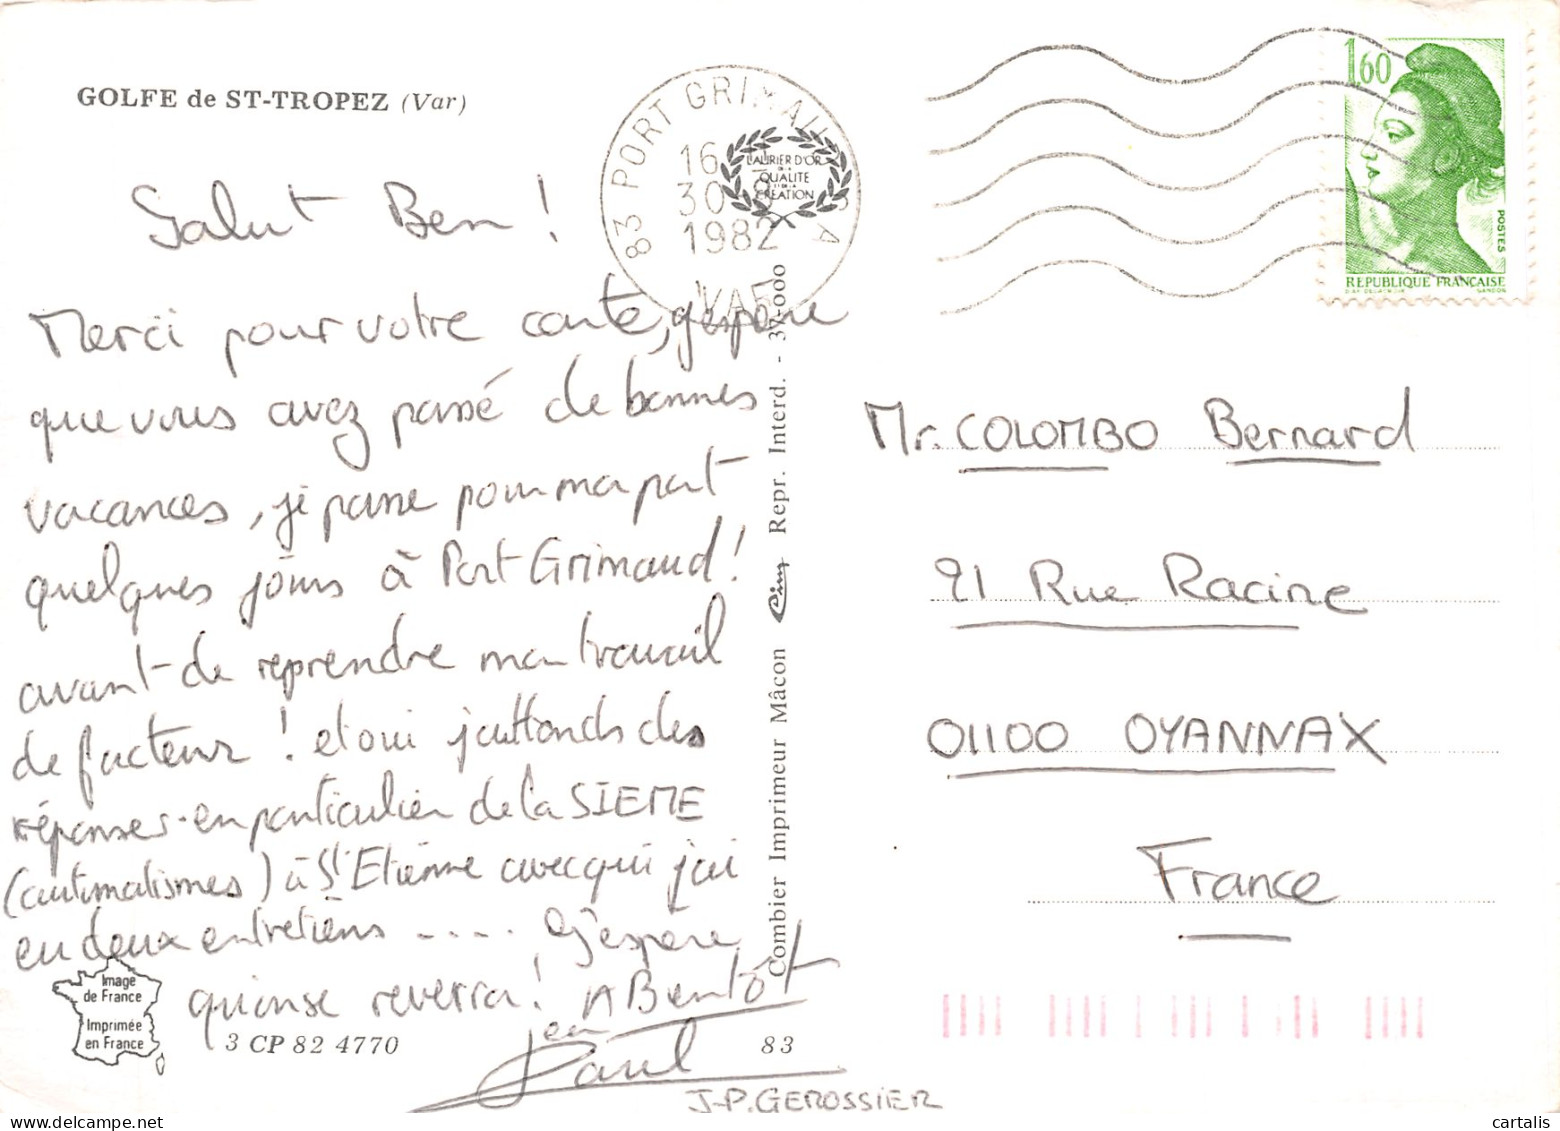 GOLFE de ST-TROPEZ (Var)
83 PORT GRIMAUD
16
30
1982
VAR
LAURIER D'OR
DE LA
QUALITE
ET DE LA
CREATION
1,60
POSTES
REPUBLIQUE FRANÇAISE
Salut Ben !
Merci pour votre carte, j'espère
que vous avez passé de bonnes
vacances, je passe pour ma part
quelques jours à Port Grimaud !
avant de reprendre mon travail
de facteur ! et oui j'attends des
réponses en particulier de la SIEME
(automatismes) à St Etienne avec qui j'ai
eu deux entretiens .... j'espère
qu'on se reverra ! A Bentôt
Jean
Paul
J-P. GEROSSIER
Mr. COLOMBO Bernard
21 Rue Racine
01100 OYANNAX
France
Combier Imprimeur Mâcon Cim Repr. Interd. - 37-000
Image
de France
Imprimée
en France
3 CP 82 4770
83
cartalis